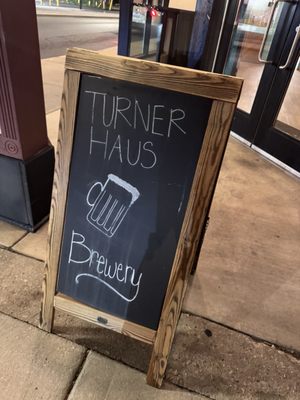 TURNER
HAUS
Brewery